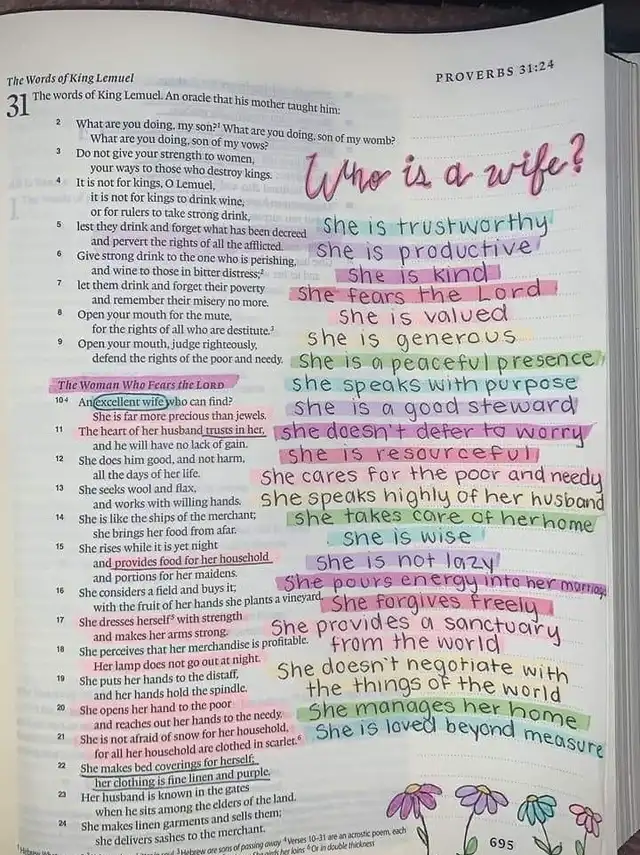 The Words of King Lemuel
PROVERBS 31:24
31 The words of King Lemuel. An oracle that his mother taught him:
2 What are you doing, my son?1 What are you doing, son of my womb?
What are you doing, son of my vows?
3 Do not give your strength to women,
your ways to those who destroy kings.
4 It is not for kings, O Lemuel,
it is not for kings to drink wine,
or for rulers to take strong drink,
5 lest they drink and forget what has been decreed
and pervert the rights of all the afflicted.
6 Give strong drink to the one who is perishing,
and wine to those in bitter distress;2
7 let them drink and forget their poverty
and remember their misery no more.
8 Open your mouth for the mute,
for the rights of all who are destitute.3
9 Open your mouth, judge righteously,
defend the rights of the poor and needy.
The Woman Who Fears the LORD
10 4 An excellent wife who can find?
She is far more precious than jewels.
11 The heart of her husband trusts in her,
and he will have no lack of gain.
12 She does him good, and not harm,
all the days of her life.
13 She seeks wool and flax,
and works with willing hands.
14 She is like the ships of the merchant;
she brings her food from afar.
15 She rises while it is yet night
and provides food for her household
and portions for her maidens.
16 She considers a field and buys it;
with the fruit of her hands she plants a vineyard.
17 She dresses herself5 with strength
and makes her arms strong.
18 She perceives that her merchandise is profitable.
Her lamp does not go out at night.
19 She puts her hands to the distaff,
and her hands hold the spindle.
20 She opens her hand to the poor
and reaches out her hands to the needy.
21 She is not afraid of snow for her household,
for all her household are clothed in scarlet.6
22 She makes bed coverings for herself;
her clothing is fine linen and purple.
23 Her husband is known in the gates
when he sits among the elders of the land.
24 She makes linen garments and sells them;
she delivers sashes to the merchant.
Who is a wife?
She is trustworthy
she is productive
she is kind
she fears the Lord
She is valued
she is generous
She is a peaceful presence
she speaks with purpose
she is a good steward
she doesn't deter to worry
she is resourceful
She cares for the poor and needy
she speaks highly of her husband
she takes care of her home
She is wise
She is not lazy
She pours energy into her marriage
She forgives freely
She provides a sanctuary
from the world
She doesn't negotiate with
the things of the world
She manages her home
She is loved beyond measure
3 Hebrew are sons of passing away 4 Verses 10–31 are an acrostic poem, each
her loins 6 Or in double thickness
695